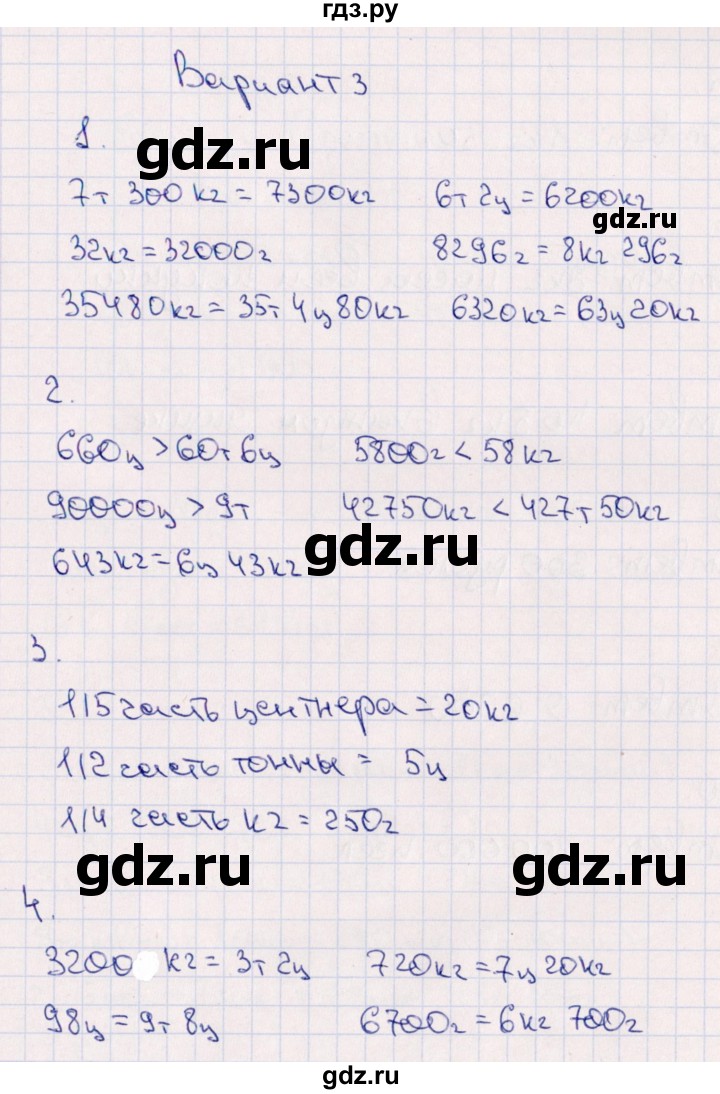 гдз.ру
Вариант 3
1.
7т 300 кг = 7300кг 6т 2ц = 6200кг
32кг = 32000г 8296г = 8кг 296г
35480кг = 35т 4ц 80кг 6320кг = 63ц 20кг
2.
660ц > 60т 6ц 5800г < 58кг
90000ц > 9т 42750кг < 427т 50кг
643кг = 6ц 43кг
3.
1/5 часть центнера = 20кг
1/2 часть тонны = 5ц
1/4 часть кг = 250г
4.
3200 кг = 3т 2ц 720кг = 7ц 20кг
98ц = 9т 8ц 6700г = 6кг 700г
gdz.ru
gdz.ru
gdz.ru
gdz.ru
gdz.ru
gdz.ru
gdz.ru